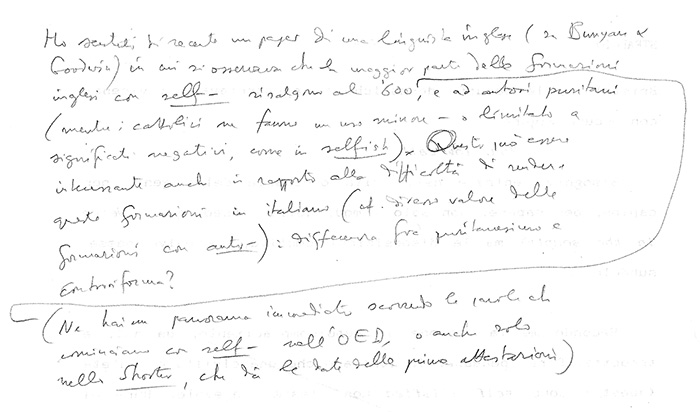 Ho sentito di recente un paper di una linguista inglese (su Bunyan &
Goodwin) in cui si osservava che la maggior parte delle formazioni
inglesi con self- risalgono al '600, e ad autori puritani
(mentre i cattolici ne fanno un uso minore – o limitato a
significati negativi, come in selfish). Questo può essere
interessante anche in rapporto alla difficoltà di rendere
queste formazioni in italiano (cf. diverso valore delle
formazioni con auto-): differenza fra puritanesimo e
Controriforma?
(Ne hai un panorama immediato scorrendo le parole che
cominciano con self- nell'OED, o anche solo
nello Shorter, che dà le date delle prime attestazioni)